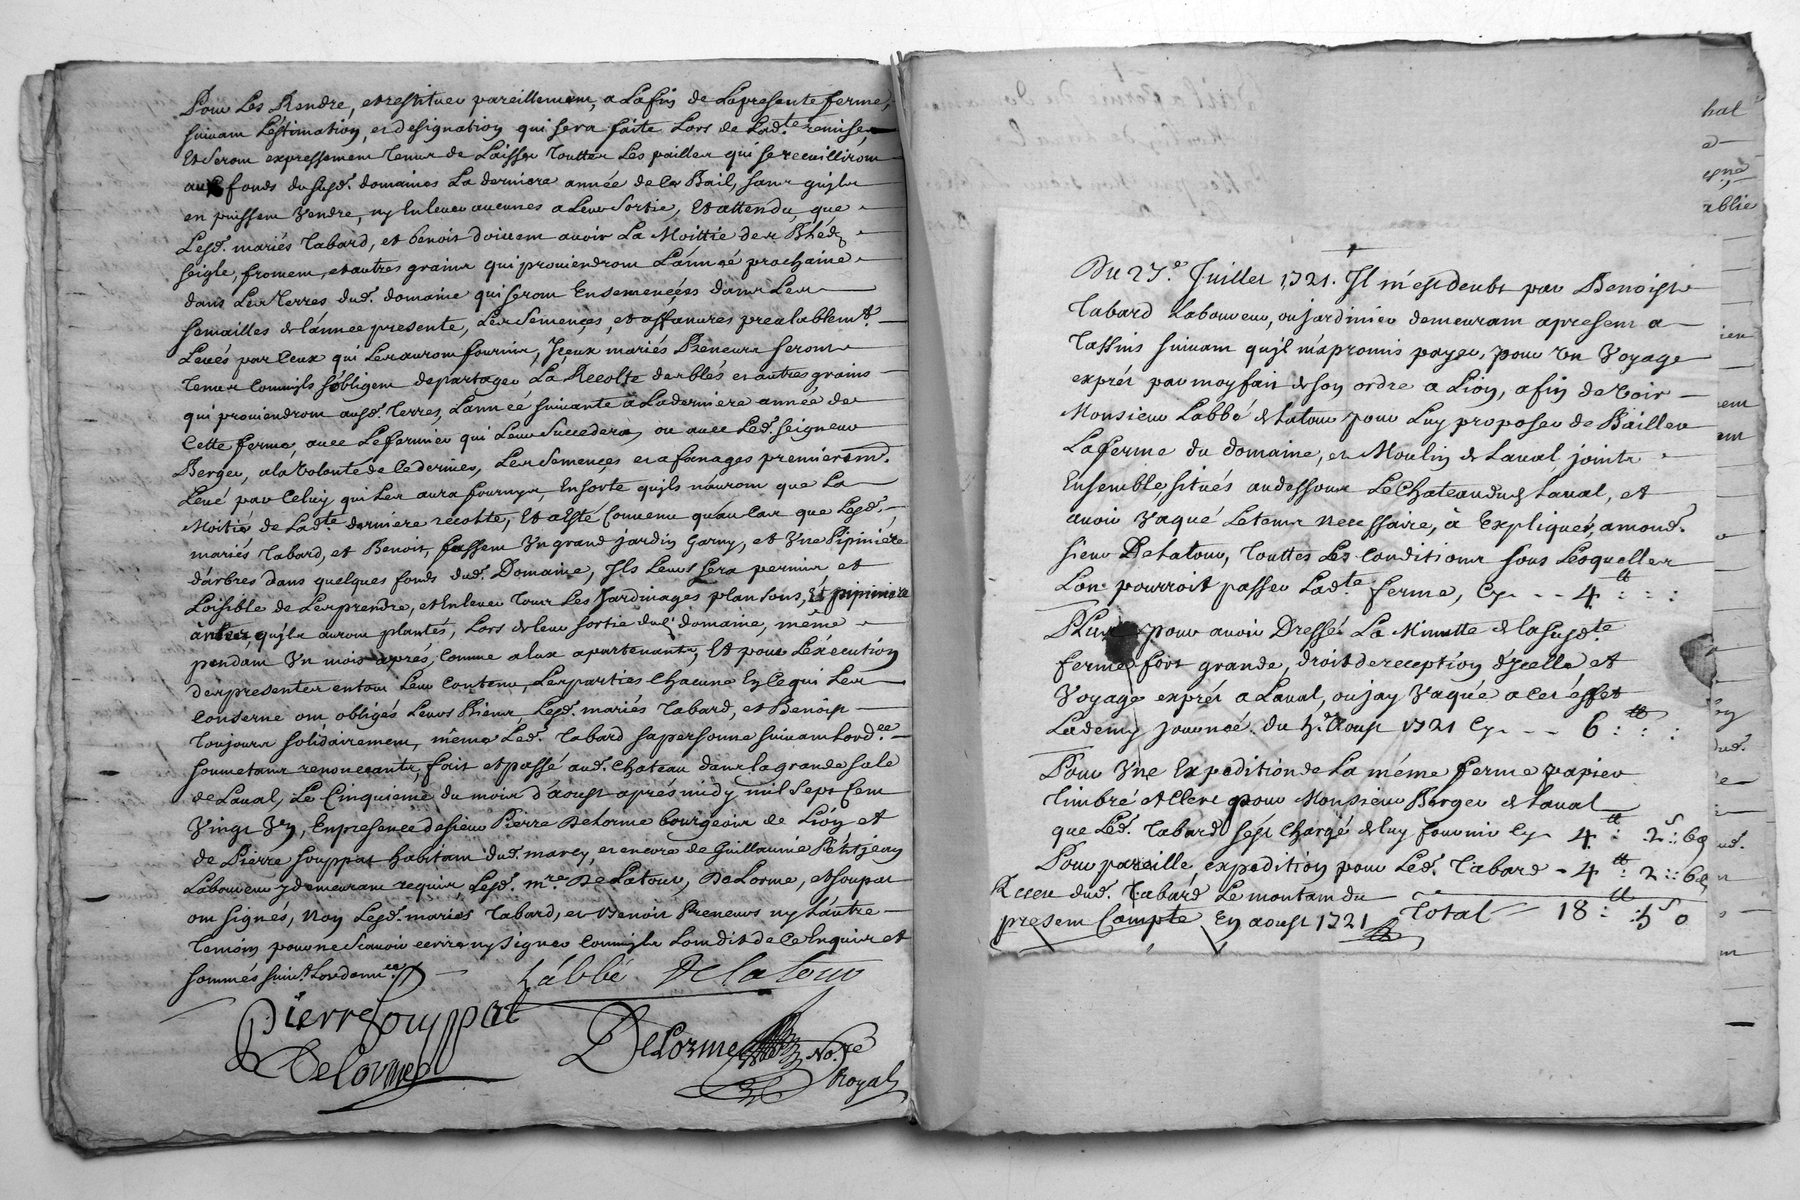 Pour Les Rendre, et restituer pareillement, a La fin de La presente ferme,
suivant L'estimation, et designation qui sera faite Lors de Lad.te remise,
Et seront expressement tenus de Laisser touttes Les pailles qui se recuilliront
aux fonds dususd. domaines La derniere année de ce Bail, sans qu'jls
en puissent Vendre, ny Enlever aucunes a Leur sortie, Et attendu que
Lesd. mariés Tabard, et benoit doivent avoir La Moittié des Bleds
seigle, froment, et autres grains qui proviendront L'année prochaine
dans Les terres dud. domaine qui seront Ensemencées dans Les
semailles de L'année presente, Les semences, et affanures prealablem.t
Levés par Ceux qui Les auront fournis, Jceux mariés Preneurs seront
tenus Comm'ils s'obligent departager La Recolte des blés et autres grains
qui proviendront ausd. terres, L'année suivante a La derniere année de
Cette ferme, avec Le fermier qui Leur succedera, ou avec Led. seigneur
Berger, a la volonté de Ce dernier, Les semences et afanages premierem.
Levé par Celuy qui Les aura fournys, Ensorte qu'jls n'auront que La
Moitié de Lad.te derniere recolte, Et a Esté Convenu qu'au Cas que Lesd.
mariés Tabard, et Benoit, fassent Vn grand Jardin garny, et Vne Pipiniére
d'arbres dans quelques fonds dud. Domaine, Jls Leurs sera permis et
Loisible de Les prendre, et Enlever tous Les Jardinages plansons, Et pipiniere
antés qu'jls auront plantés, Lors de leur sortie dud. domaine, même
pendant Vn mois aprés, Comme a Eux apartenants, Et pour L'éxécution
des presentes en tout Leur Contenu, Les parties Chacune En Ce qui Les
Conserne ont obligés Leurs Biens Lesd. mariés Tabard, et Benoist
toujours solidairement, même Led. Tabard sa personne suivant Lord.ce
soumetants renoncants, fait et passé aud. Chateau dans la grande sale
de Laval, Le Cinquieme du mois d'aoust aprés midy mil sept Cent
Vingt Vn, En presence de sieur Pierre Delorme bourgeois de Lion et
de Pierre Souppat habitant dud. marcy, et encore de Guillaume Petitjean
Laboureur y demeurant requis, Lesd. mre DeLatour, DeLorme, et soupat
ont signés, Non Lesd. mariés Tabard, et Benoit Preneurs ny L'autre
temoin pour ne scavoir ecrire ny signer Comm'ils L'ont dit de Ce Enquis et
sommés suiv.t Lordonn.ce
L'abbé Delatour
Pierre Souppat
Delorme
DeLorme No.re
Royal
Du 27.e Juillet 1721. Jl m'est deubt par Benoist
Tabard Laboureur, ou jardinier demeurant apresent a
Tassins suivant qu'jl m'a promis payer, pour Vn Voyage
exprés par moy fait de son ordre a Lion, afin de voir
Monsieur L'abbé de Latour pour Luy proposer de Bailler
La ferme du domaine, et Moulin de Laval joints
Ensemble, situés audessous Le Chateau dud Laval, et
avoir Vaqué Le tems necessaire, à Expliquér, a mond.
sieur DeLatour, touttes Les Conditions sous Lesquelles
L'on pourroit passer Lad.te ferme, Cy - - 4 tt : : :
Plus pour avoir Dressés La Minutte de la susd.te
ferme fort grande, droit de reception d'Jcelle, et
Voyage exprés a Laval, ou jay Vaquée a Cet éffet
La demy journeé du 5. Aoust 1721 Cy - - 6 tt : : :
Pour Vne Expedition de La méme ferme papier
timbré et Clere pour Monsieur Berger de Laval
que Led. Tabard s'est Chargé de luy fournir Cy 4 tt : 2 s : 6 d
Pour pareille, expedition pour Led. Tabard - 4 tt : 2 : : 6 d
Receu dud. Tabard Le montant du
present Compte En aoust 1721 Total 18 tt : : 5 s 0